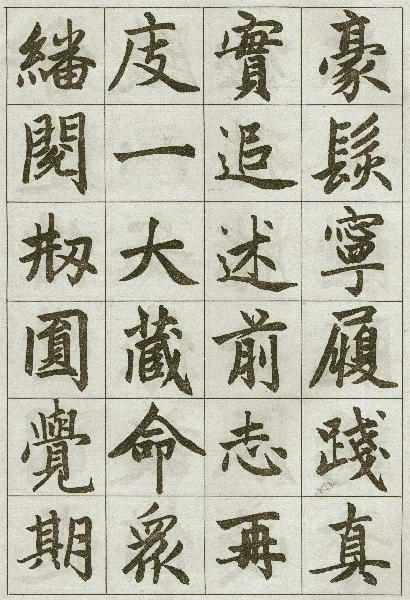 豪髮寧履踐真
實追述前志再
庋一大藏命眾
繙閱刱圓覺期